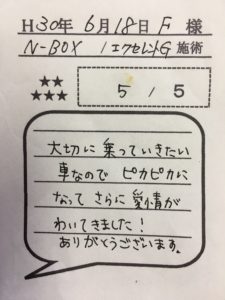 H30年 6月18日 F 様
N-BOX / エクセレントG 施術
★★
★★★
5 / 5
大切に乗っていきたい
車なので ピカピカに
なって さらに 愛情が
わいてきました!
ありがとうございます。